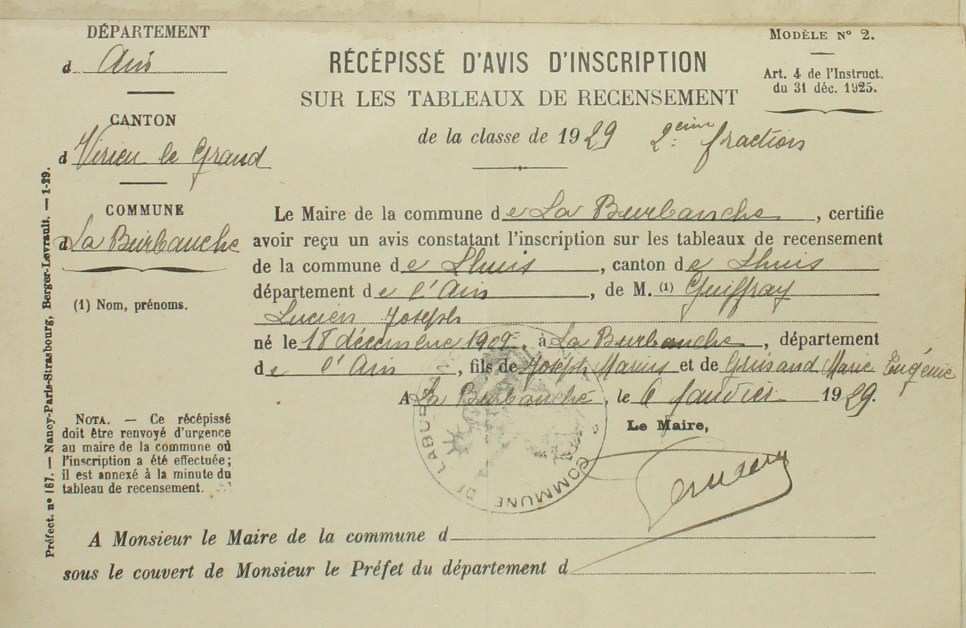 DÉPARTEMENT
d Ain
CANTON
d Virieu le Grand
COMMUNE
d La Burbanche
(1) Nom, prénoms.
NOTA. — Ce récépissé
doit être renvoyé d'urgence
au maire de la commune où
l'inscription a été effectuée;
il est annexé à la minute du
tableau de recensement.
Préfect. n° 167. — Nancy-Paris-Strasbourg, Berger-Levrault. — 1-29.
MODÈLE N° 2.
Art. 4 de l'Instruct.
du 31 déc. 1925.
RÉCÉPISSÉ D'AVIS D'INSCRIPTION
SUR LES TABLEAUX DE RECENSEMENT
de la classe de 1929 2ème fraction
Le Maire de la commune de La Burbanche, certifie
avoir reçu un avis constatant l'inscription sur les tableaux de recensement
de la commune de Lhuis, canton de Lhuis
département de l'Ain, de M. (1) Guiffray
Lucien Joseph
né le 18 décembre 1909, à La Burbanche, département
de l'Ain, fils de Joseph Marius et de Marie Eugénie
A La Burbanche, le 6 Janvier 1929.
Le Maire,
COMMUNE DE LABURB
A Monsieur le Maire de la commune d
sous le couvert de Monsieur le Préfet du département d